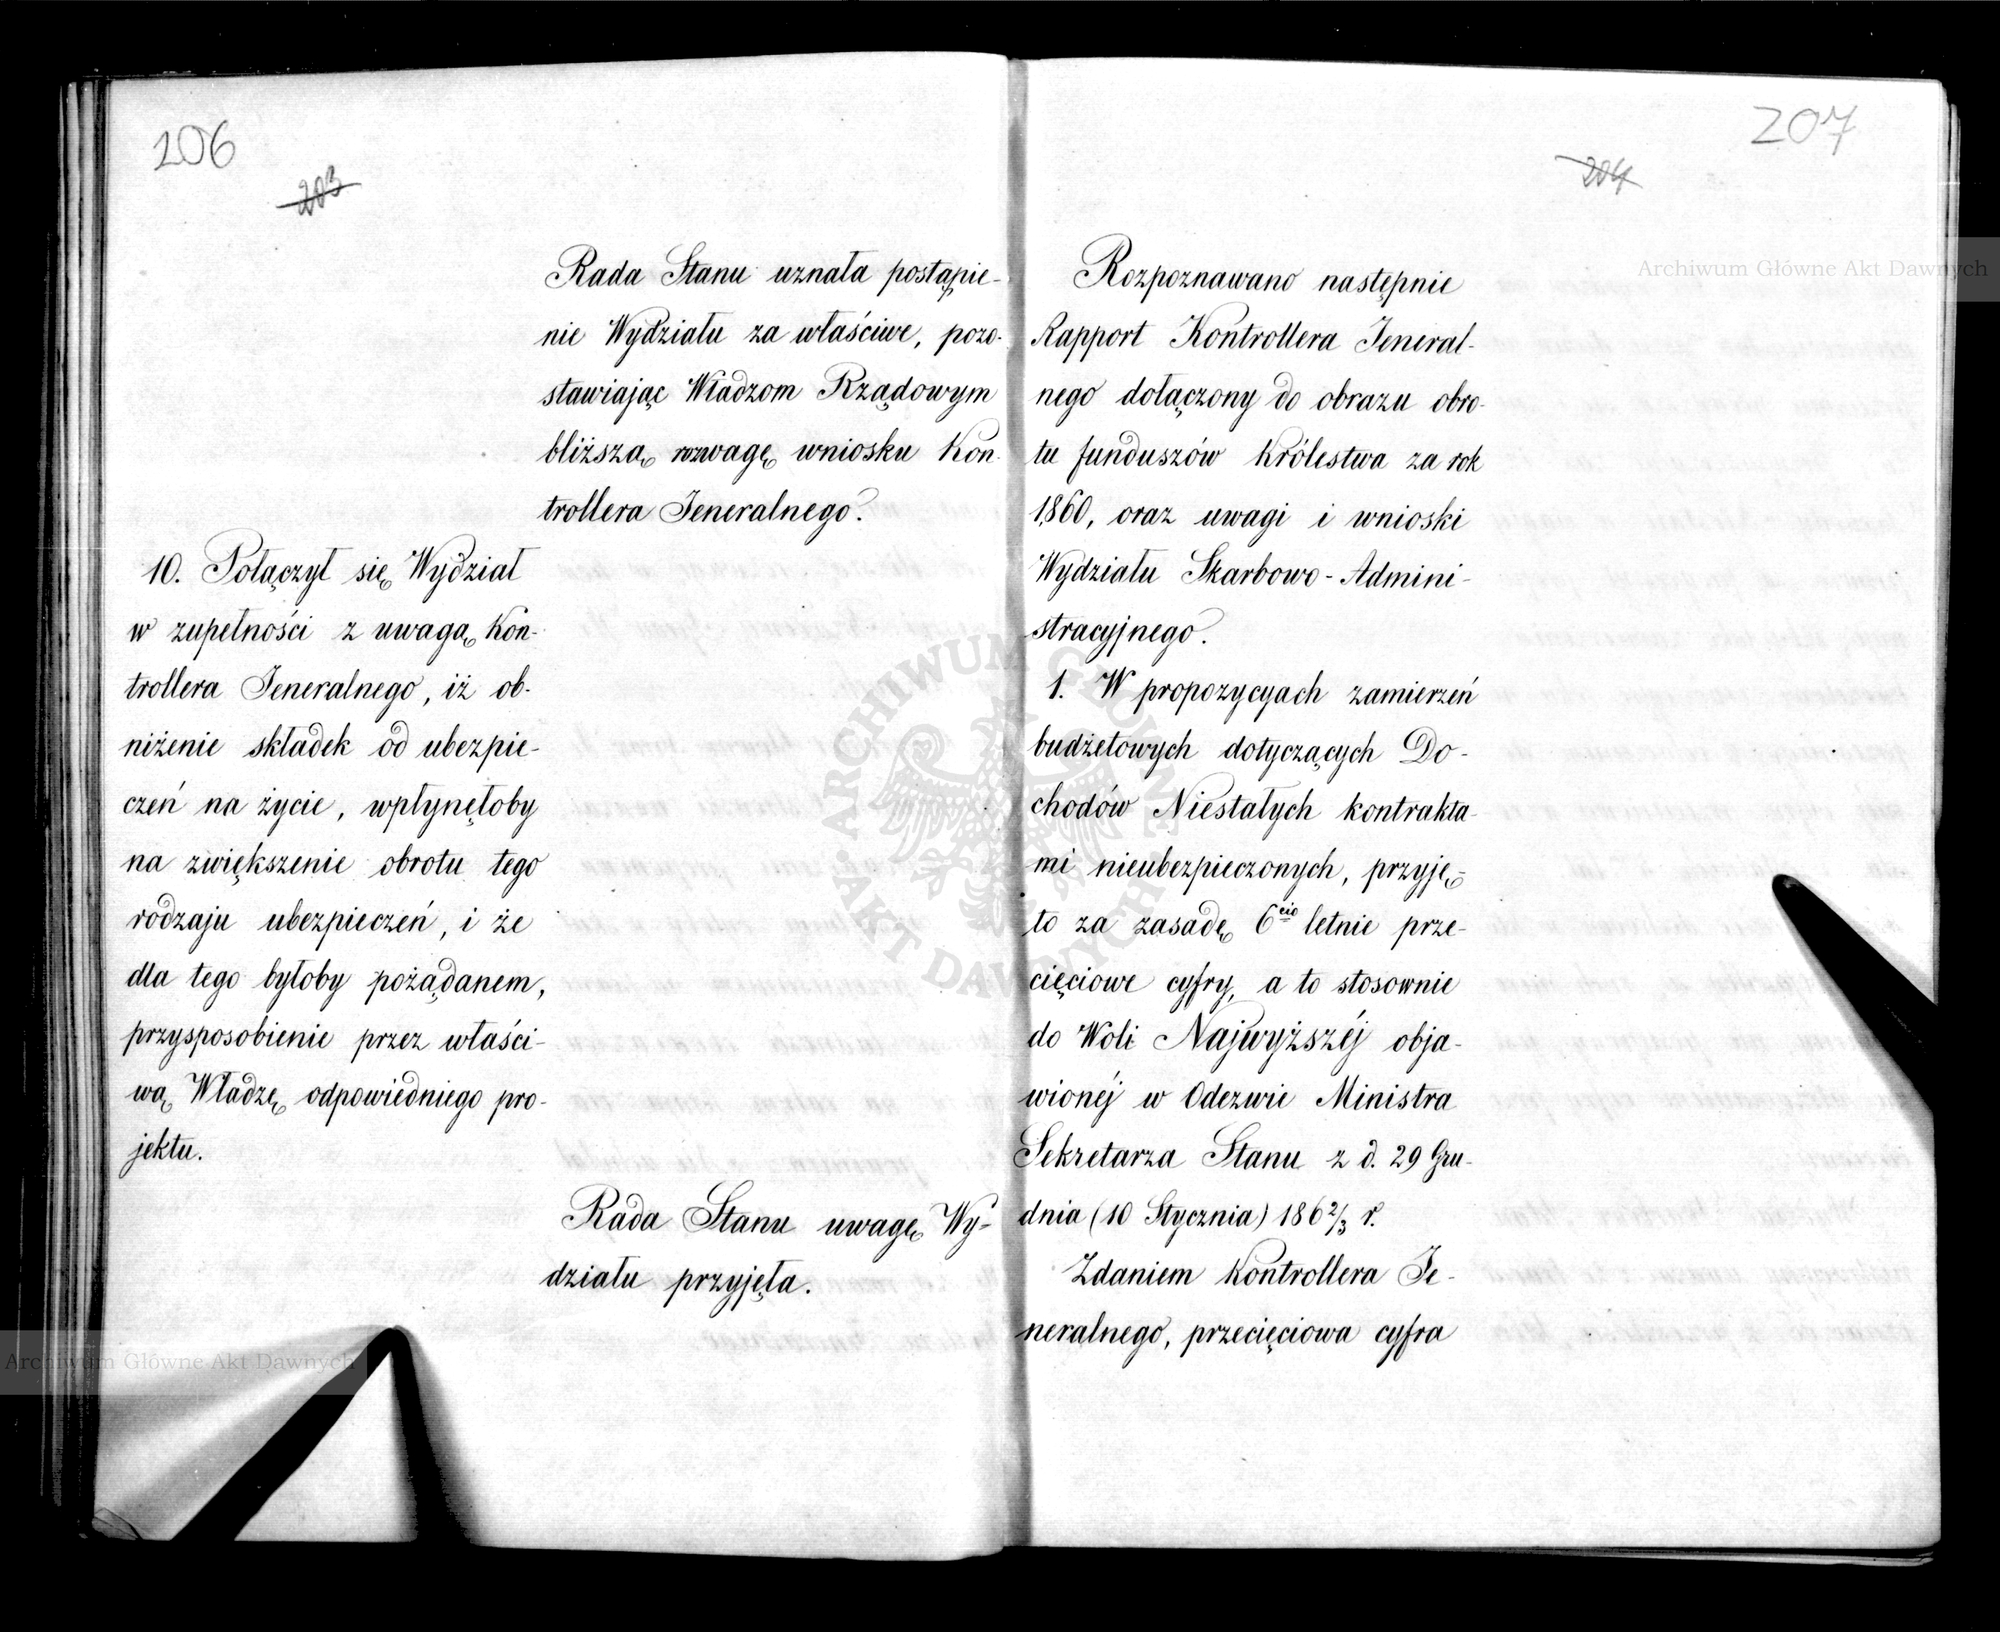 206
203
Rada Stanu uznała postąpie-
nie Wydziału za właściwe, pozo-
stawiając Władzom Rządowym
bliższą rozwagę wniosku Kon-
trollera Jeneralnego.
10. Połączył się Wydział
w zupełności z uwagą Kon-
trollera Jeneralnego, iż ob-
niżenie składek od ubezpie-
czeń na życie, wpłynęłoby
na zwiększenie obrotu tego
rodzaju ubezpieczeń, i że
dla tego byłoby pożądanem,
przysposobienie przez właści-
wą Władzę odpowiedniego pro-
jektu.
Rada Stanu uwagę Wy-
działu przyjęła.
207
204
Rozpoznawano następnie
Rapport Kontrollera Jeneral-
nego dołączony do obrazu obro-
tu funduszów Królestwa za rok
1860, oraz uwagi i wnioski
Wydziału Skarbowo-Admini-
stracyjnego.
1. W propozycyach zamierzeń
budżetowych dotyczących Do-
chodów Niestałych kontrakta-
mi nieubezpieczonych, przyję-
to za zasadę 6cio letnie prze-
cięciowe cyfry, a to stosownie
do Woli Najwyższéj obja-
wionéj w Odezwie Ministra
Sekretarza Stanu z d. 29 Gru-
dnia (10 Stycznia) 1862/3 r.
Zdaniem Kontrollera Je-
neralnego, przecięciowa cyfra
Archiwum Główne Akt Dawnych
Archiwum Główne Akt Dawnych
ARCHIWUM GŁÓWNE AKT DAWNYCH